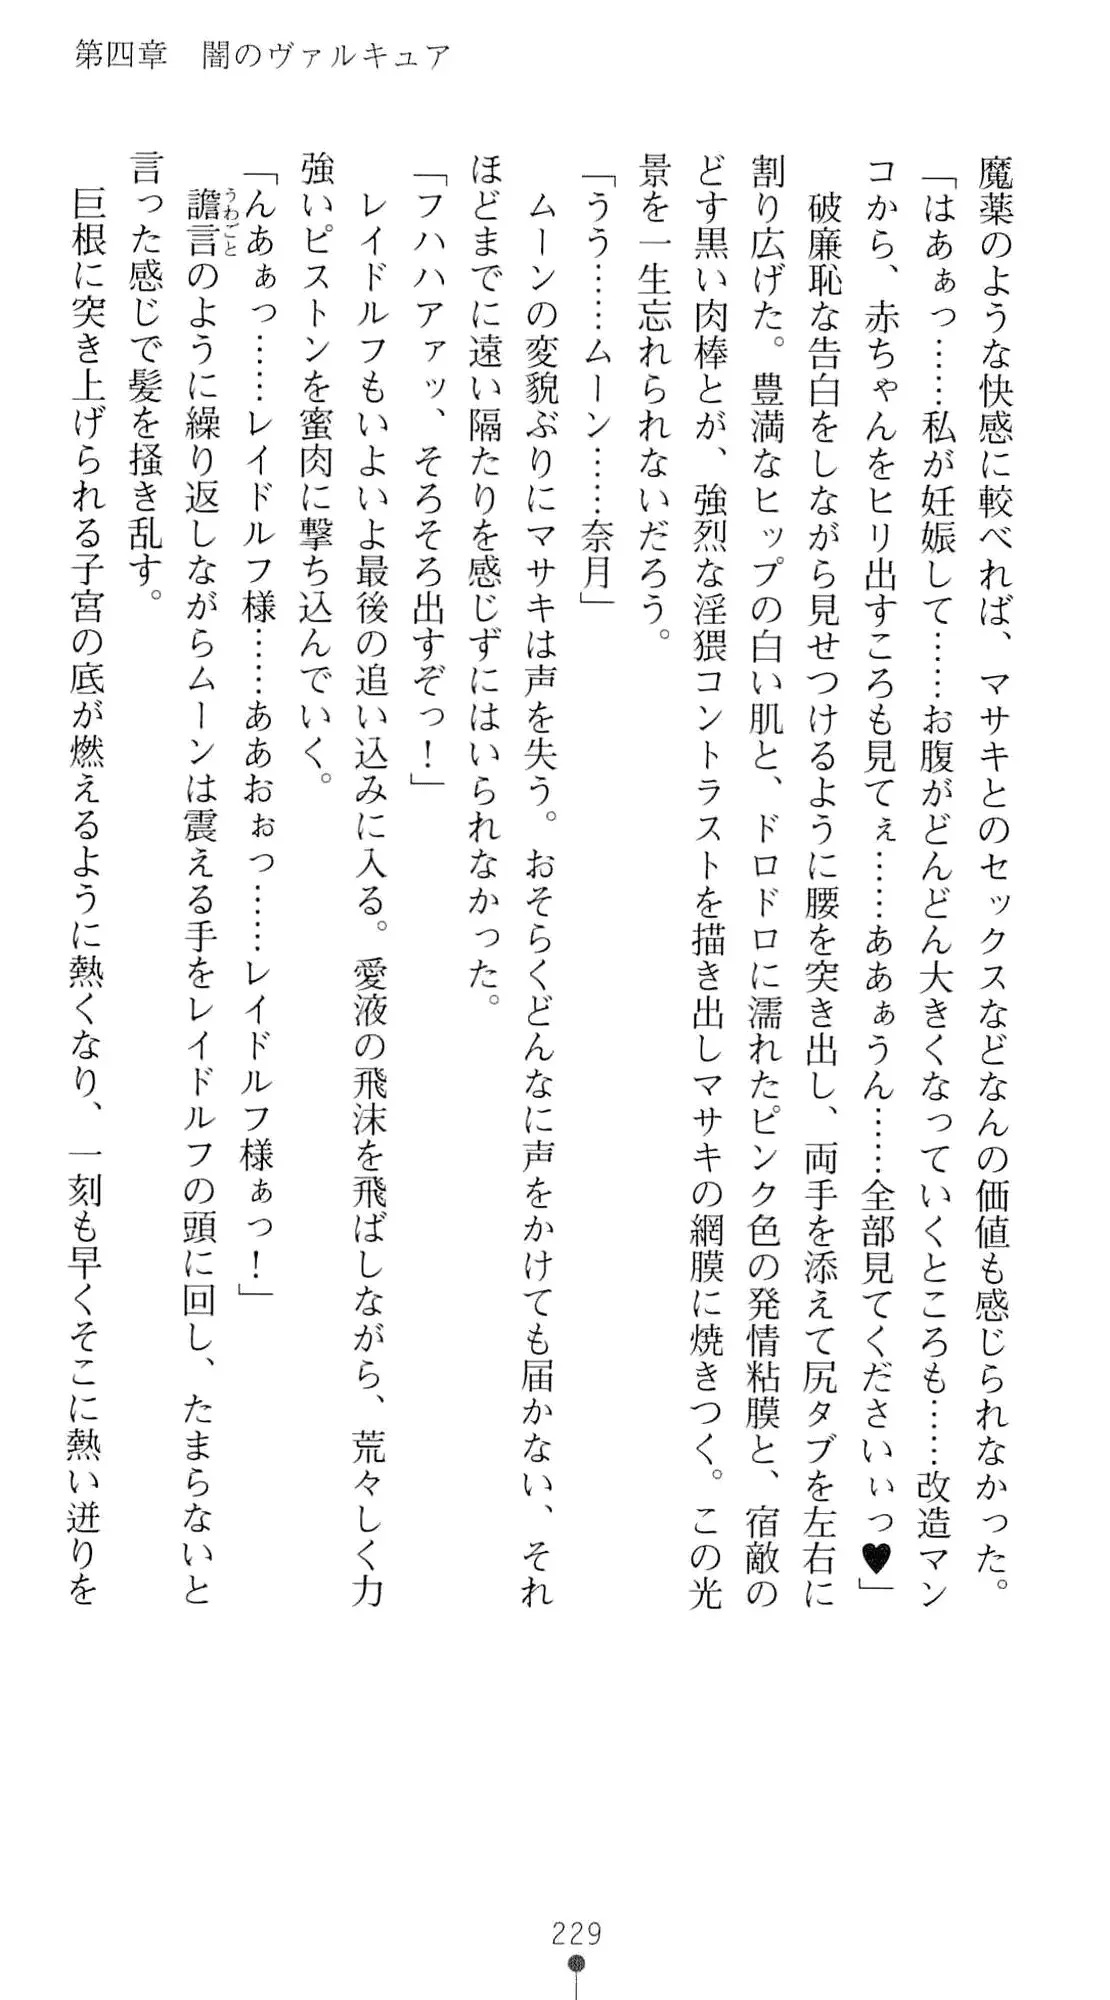 第四章　闇のヴァルキュア
魔薬のような快感に較べれば、マサキとのセックスなどなんの価値も感じられなかった。
「はあぁっ……私が妊娠して……お腹がどんどん大きくなっていくところも……改造マン
コから、赤ちゃんをヒリ出すころも見てぇ……ああぁうん……全部見てくださいぃっ♥」
　破廉恥な告白をしながら見せつけるように腰を突き出し、両手を添えて尻タブを左右に
割り広げた。豊満なヒップの白い肌と、ドロドロに濡れたピンク色の発情粘膜と、宿敵の
どす黒い肉棒とが、強烈な淫猥コントラストを描き出しマサキの網膜に焼きつく。この光
景を一生忘れられないだろう。
「うう……ムーン……奈月」
　ムーンの変貌ぶりにマサキは声を失う。おそらくどんなに声をかけても届かない、それ
ほどまでに遠い隔たりを感じずにはいられなかった。
「フハハアァッ、そろそろ出すぞっ！」
　レイドルフもいよいよ最後の追い込みに入る。愛液の飛沫を飛ばしながら、荒々しく力
強いピストンを蜜肉に撃ち込んでいく。
「んあぁっ……レイドルフ様……ああおぉっ……レイドルフ様ぁっ！」
　譫言うわごとのように繰り返しながらムーンは震える手をレイドルフの頭に回し、たまらないと
言った感じで髪を掻き乱す。
　巨根に突き上げられる子宮の底が燃えるように熱くなり、一刻も早くそこに熱い迸りを
229